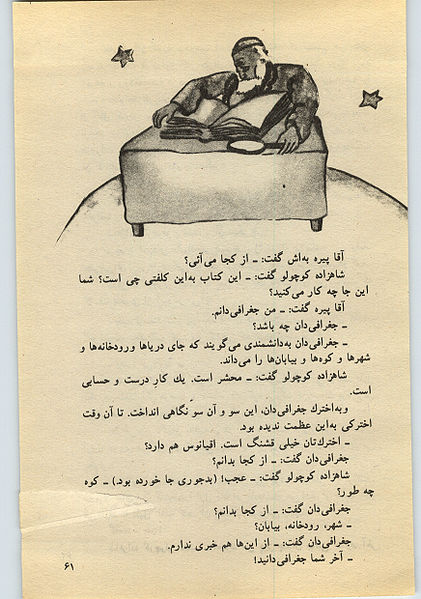 آقا پیره به‌اش گفت: ـ از کجا می‌آئی؟
شاهزاده کوچولو گفت: ـ این کتاب به‌این کلفتی چی است؟ شما
این جا چه کار می‌کنید؟
آقا پیره گفت: ـ من جغرافی‌دانم.
ـ جغرافی‌دان چه باشد؟
ـ جغرافی‌دان به‌دانشمندی می‌گویند که جای دریاها و رودخانه‌ها و
شهرها و کوه‌ها و بیابان‌ها را می‌داند.
شاهزاده کوچولو گفت: ـ محشر است. یك کارِ درست و حسابی
است.
و به‌اخترك جغرافی‌دان، این سو و آن سوَ نگاهی انداخت. تا آن وقت
اخترکی به‌این عظمت ندیده بود.
ـ اخترك‌تان خیلی قشنگ است. اقیانوس هم دارد؟
جغرافی‌دان گفت: ـ از کجا بدانم؟
شاهزاده کوچولو گفت: ـ عجب! (بدجوری جا خورده بود.) ـ کوه
چه طور؟
جغرافی‌دان گفت: ـ از کجا بدانم؟
ـ شهر، رودخانه، بیابان؟
جغرافی‌دان گفت: ـ از این‌ها هم خبری ندارم.
ـ آخر شما جغرافی‌دانید!
۶۱